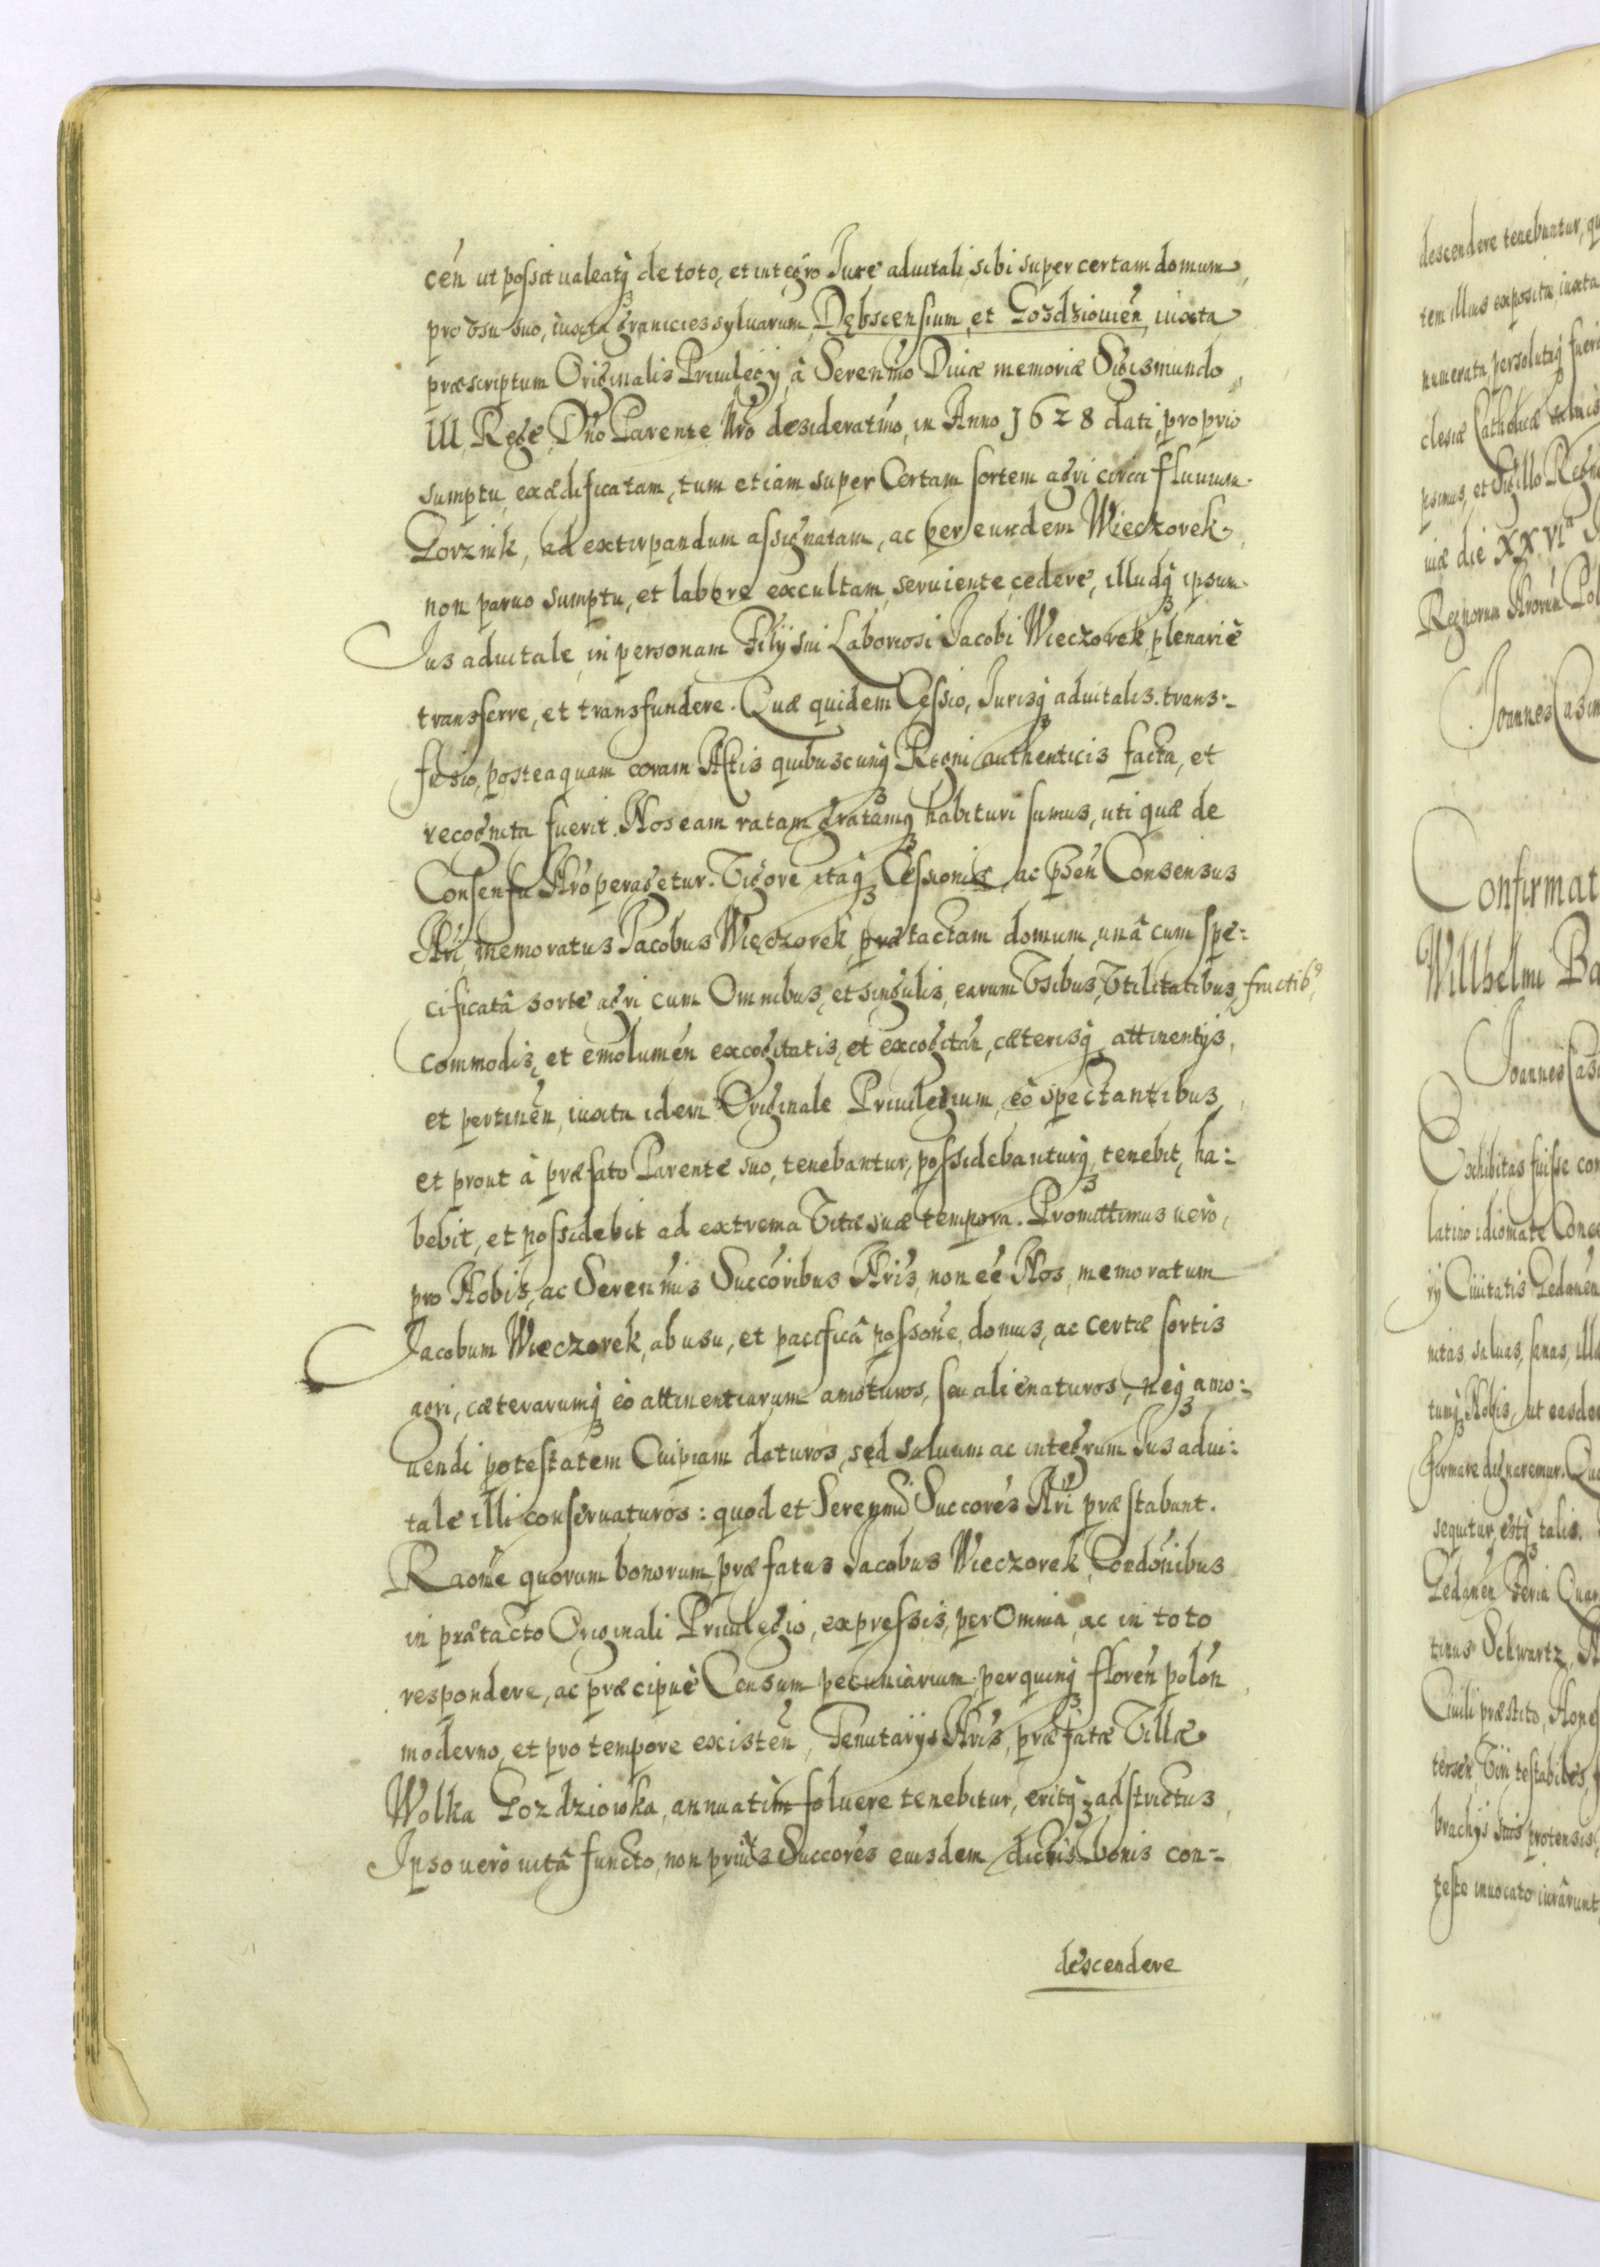 cen̄ ut possit valeatq́ꝫ de toto, et integro Jure advitali sibi super certam domum,
pro vsu suo, iuxta granicies syluarum Dębscensium et Gozdziouien̄, iuxta
præscriptum Originalis Priuilegij, à Seren̄mo Diuæ memoriæ Sigismundo
III. Rege, Dn̄o Parente Nr̄o desideratm̄o, in Anno 1628 dati, proprio
sumptu, exædificatam, tum etiam super Certam sortem agri circa fluuium
Gorznik, ad extirpandum assignatam, ac per eundem Wieczorek,
non paruo sumptu, et labore excultam, seruiente, cedere, illudq́ꝫ ipsum
Jus aduitale, in personam Filij sui Laboriosi Jacobi Wieczorek, plenariè
transferre, et transfundere. Quæ quidem Cessio, Jurisq́ꝫ aduitalis trans:
fusio, posteaquam coram Actis quibuscunq́ꝫ Regni authenticis facta, et
recognita fuerit. Nos eam ratam gratamq́ꝫ habituri sumus, uti quæ de
Consensu Nr̄o peragetur. Vigore itaq́ꝫ Cessionis, ac p̄sen̄ Consensus
Nr̄i, memoratus Jacobus Więczorek, prætactam domum, unâ cum spe:
cificatâ sorte agri, cum Omnibus, et singulis, earum Vsibus, Vtilitatibus, fructib⁹,
commodis, et emolumen̄ excogitatis, et excogitan̄, cæterisq́ꝫ attinentijs,
et pertinen̄, iuxta idem Originale Priuilegium, eò spectantibus,
et prout à præfato Parente suo, tenebantur, possidebanturq́ꝫ, tenebit, ha:
bebit, et possidebit ad extrema Vitæ suæ tempora. Promittimus uerò,
pro Nobis, ac Seren̄mis Succōribus Nr̄is, non eē Nos, memoratum
Jacobum Wieczorek, ab usu, et pacificâ possōne, domus, ac certæ sortis
agri, cæterarumq́ꝫ eò attinentiarum amoturos, seu alienaturos, neq́ꝫ amo:
uendi potestatem Cuipiam daturos, sed saluum ac integrum Jus adui:
tale illi conseruaturos: quod et Seren̄mi Succōres Nr̄i præstabunt.
Raōne quorum bonorum, præfatus Jacobus Wieczorek, Cōndōnibus
in prætacto Originali Priuilegio, expressis, per Omnia, ac in toto
respondere, ac præcipuè Censum pecuniarium, per quinq́ꝫ floren̄ polōn
moderno, et pro tempore existen̄, Tenutarijs Nr̄is, præfatæ Villæ
Wolka Gozdziowka, annuatim soluere tenebitur, eritq́ꝫ adstrictus,
Ipso uerò uitâ functo, non prius Succōres eiusdem dictis bonis con:
descendere
descendere tenebuntur, qu
tem illius exposita, iuxta
numerata, persolutaq́ꝫ fueri
clesiæ Catholicæ
psimus, et Sigillo Regni
die XXVIª
Regnorum Nr̄orum Pol
Joannes Casim
Confirmat
Willhelmi Ba
Joannes Casi
Exhibitas fuisse cor
latino idiomate Conce
ry Ciuitatis Gedanen̄
nitas, saluas, sanas, illæ
tumq́ꝫ Nobis, ut easdem
firmare dignaremur. Qua
sequitur, estq́ꝫ talis.
Gedanen̄ Feria Quar
tinus Schwartz,
Ciuili præstito, Hones
terser, Viri testabiles,
brachijs suis protensis
teste inuocato iurârunt